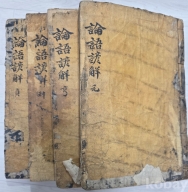 論語諺解 元
論語諺解 亨
論語諺解
論語諺解